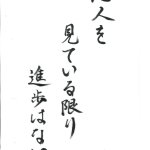 人を
見ている限り
進歩はない